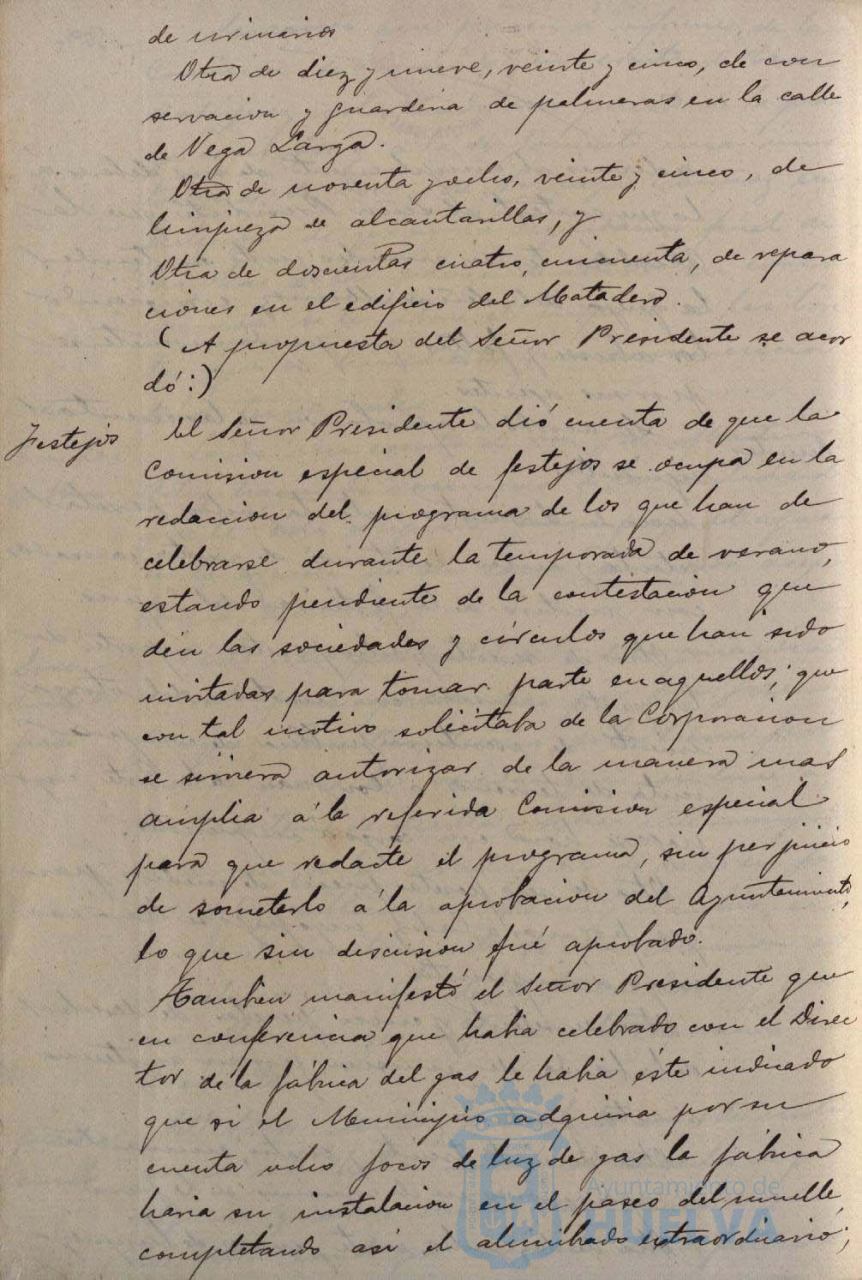 de urinarios
Otra de diez y nueve, veinte y cinco, de con
servacion y guarderia de palmeras en la calle
de Vega Larga.
Otra de noventa y ocho, veinte y cinco, de
limpieza de alcantarillas, y
Otra de doscientas cuatro, cincuenta, de repara
ciones en el edificio del Matadero.
(A propuesta del Señor Presidente se acor
dó:)
Festejos
El Señor Presidente dió cuenta de que la
Comision especial de festejos se ocupa en la
redaccion del programa de los que han de
celebrarse durante la temporada de verano,
estando pendiente de la contestacion que
dén las sociedades y círculos que han sido
invitadas para tomar parte en aquellos; que
con tal motivo solicitaba de la Corporacion
se sirviera autorizar de la manera mas
amplia á la referida Comision especial
para que redacte el programa, sin perjuicio
de someterlo á la aprobacion del Ayuntamiento,
lo que sin discusion fué aprobado.
Tambien manifestó el Señor Presidente que
en conferencia que habia celebrado con el Direc
tor de la fábrica del gas le habia éste indicado
que si el Municipio adquiria por su
cuenta ocho focos de luz de gas la fábrica
haria su instalacion en el paseo del muelle,
completando asi el alumbrado extraordinario;
Ayuntamiento de
HUELVA